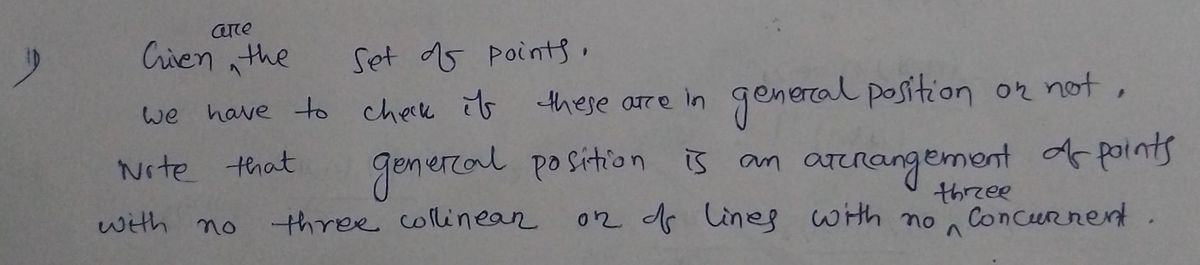 1) Given are the set of points.
We have to check if these are in general position or not.
Note that general position is an arrangement of points
with no three collinear or of lines with no three concurrent.